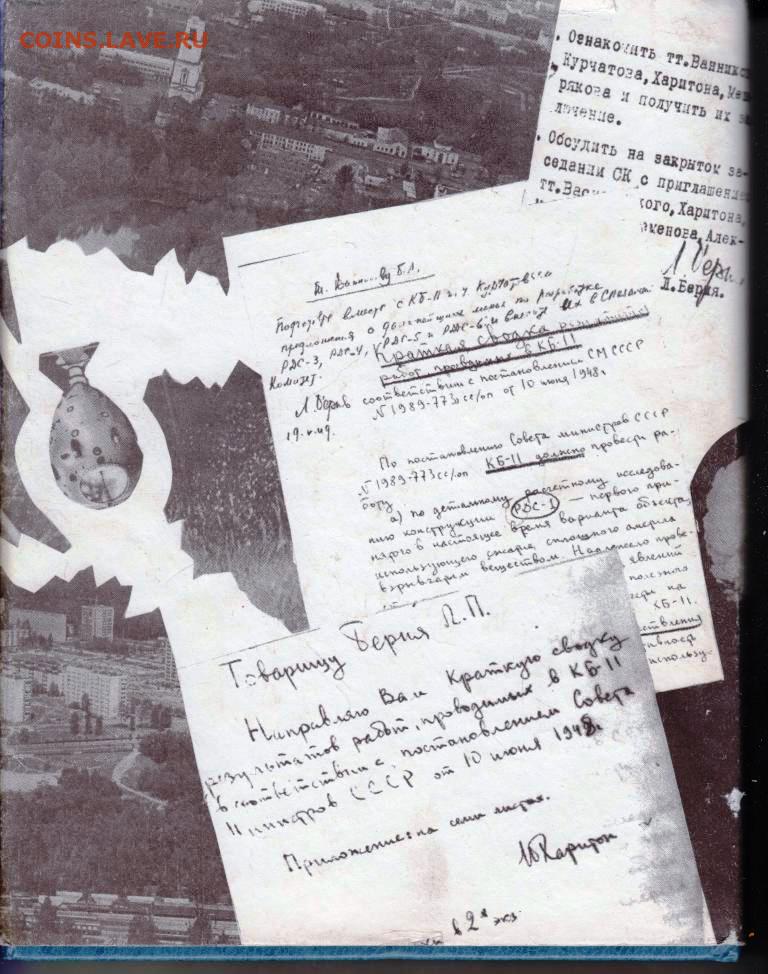 COINS.LAVE.RU
. Ознакомить тт.Ванник
Курчатова, Харитона, Ме
рякова и получить их за
лючение.
. Обсудить на закрытом за-
седании СК с приглашение
тт.Вас кого, Харитона,
еменова, Алек-
Л.Берия.
Л.Берия.
т. Ванникову Б.Л.
Подготовьте вместе с КБ-11 и т. Курчатовым
предложения о дальнейших мерах по разработке
РДС-3, РДС-4, РДС-5 и РДС-6 и внесите их в Специальный
Комитет.
Л.Берия
Краткая сводка результатов
работ, проводимых в КБ-11
в соответствии с постановлением СМ СССР
№1989-773сс/оп от 10 июня 1948г.
По постановлению Совета министров СССР
№1989-773сс/оп КБ-11 должно провести ра-
боту
а) по детальному расчетному исследова-
нию конструкции РДС-1 — первого при-
нятого в настоящее время варианта объекта,
использующего сжатие сплошного
взрывчатым веществом. Надлежало прове-
явлений
полезного
на
КБ-11.
использу-
Товарищу Берия Л.П.
Направляю Вам Краткую сводку
результатов работ, проводимых в КБ-11
в соответствии с постановлением Совета
Министров СССР от 10 июня 1948г.
Приложение: на семи листах.
Ю Харитон
в 2х экз